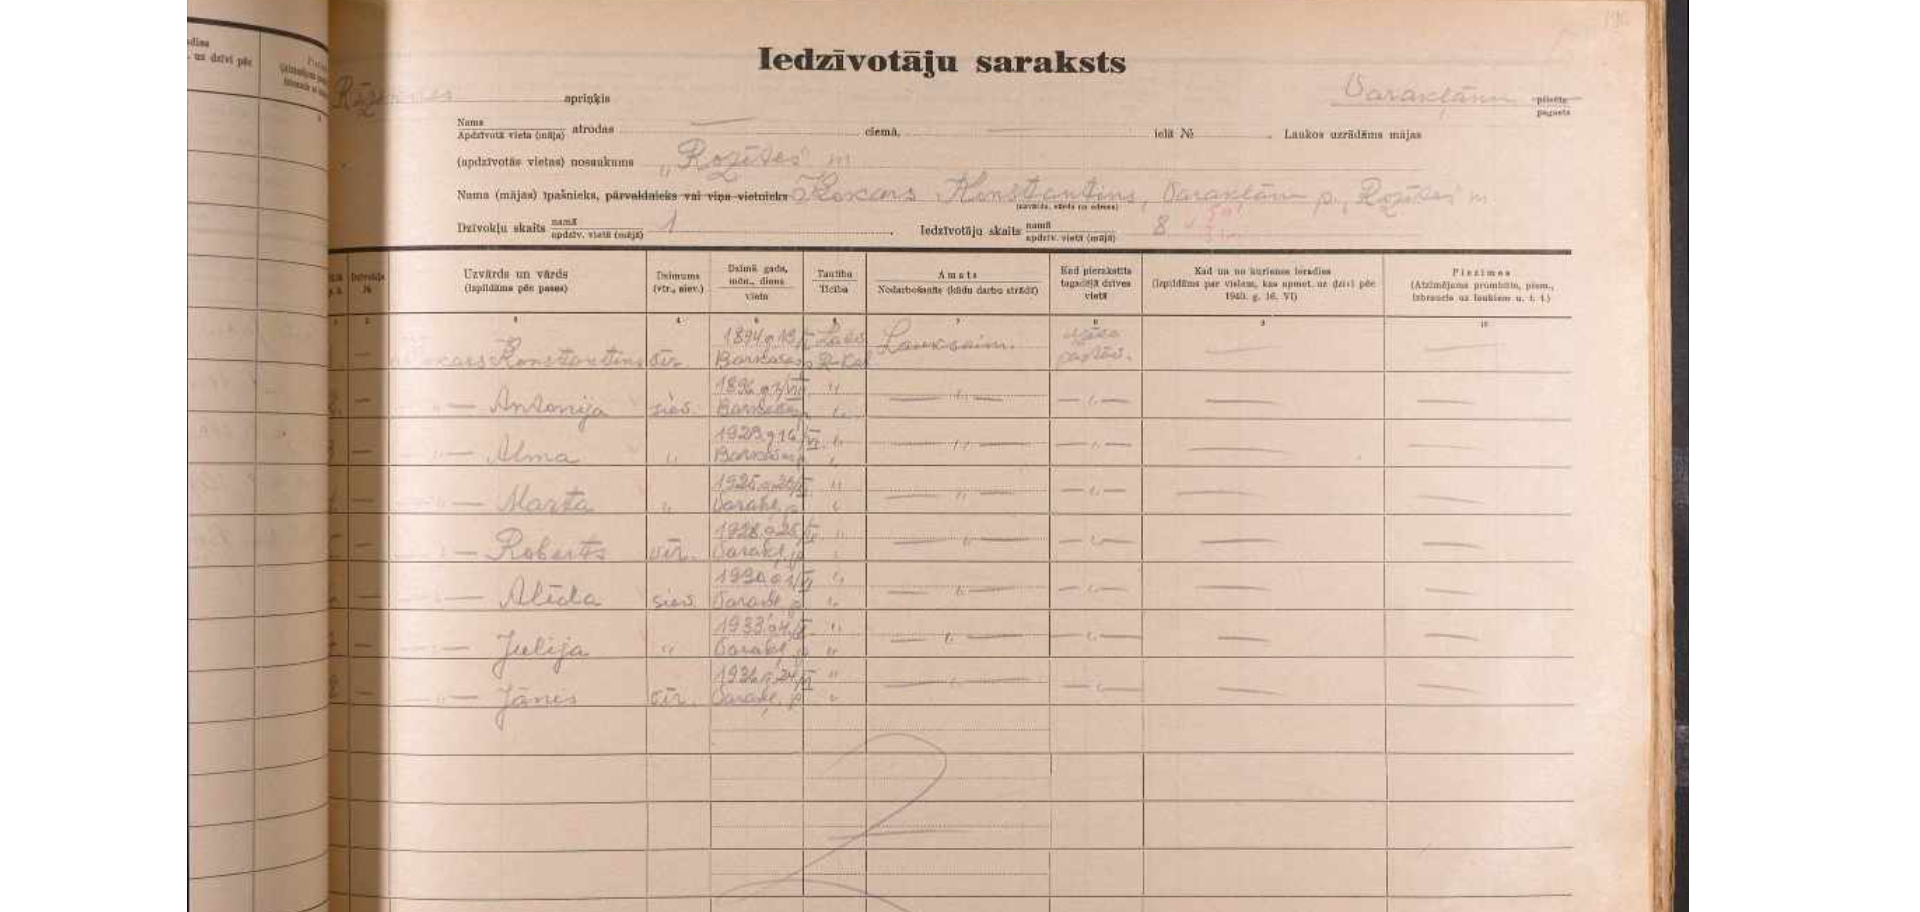 Iedzīvotāju saraksts
Rēzeknes apriņķis Varakļānu pilsēta pagasts
Nams Apdzīvotā vieta (māja) atrodas — ciemā, ielā № . Laukos uzrādāms mājas
(apdzīvotās vietas) nosaukums „Rozītes" m
Nama (mājas) īpašnieks, pārvaldnieks vai viņa vietnieks Kokars Konstantins, Varakļānu p., „Rozītes" m
(uzvārds, vārds un adrese)
Dzīvokļu skaits namā apdzīv. vietā (mājā) 1 . Iedzīvotāju skaits namā apdzīv. vietā (mājā) 8
Dzīvokļa № Uzvārds un vārds (Izpildāms pēc pases) Dzimums (vīr., siev.) Dzimš. gads, mēn., diena vieta Tautība Ticība Amats Nodarbošanās (kādu darbu strādā) Kad pierakstīts tagadējā dzīves vietā Kad un no kurienes ieradies (Izpildāms par visiem, kas apmet. uz dzīvi pēc 1940. g. 16. VI) Piezīmes (Atzīmējams prombūtn, piem., izbraucis uz laukiem u. t. t.)
1 2 3 4 5 6 7 8 9 10
— Kokars Konstantins vīr. 1894 g. Barkavas p. Latv. R-Kat Lauksaim. — —
2. — „ — Antonija siev. Barkavas p. „ „ — „ — — „ — — —
— „ — Alma „ Barkavas p. „ „ — „ — — „ — — —
— „ — Marta „ 1925 g. Varakļ. p. „ „ — „ — — „ — — —
— „ — Roberts vīr. 1928 g. Varakļ. p. „ „ — „ — — „ — — —
— „ — Alīda siev. 1930 g. Varakļ. p. „ „ — „ — — „ — — —
— „ — Julija „ 1933 g. Varakļ. p. „ „ — „ — — „ — — —
— „ — Jānis vīr. Varakļ. p. „ „ — „ — — „ — — —